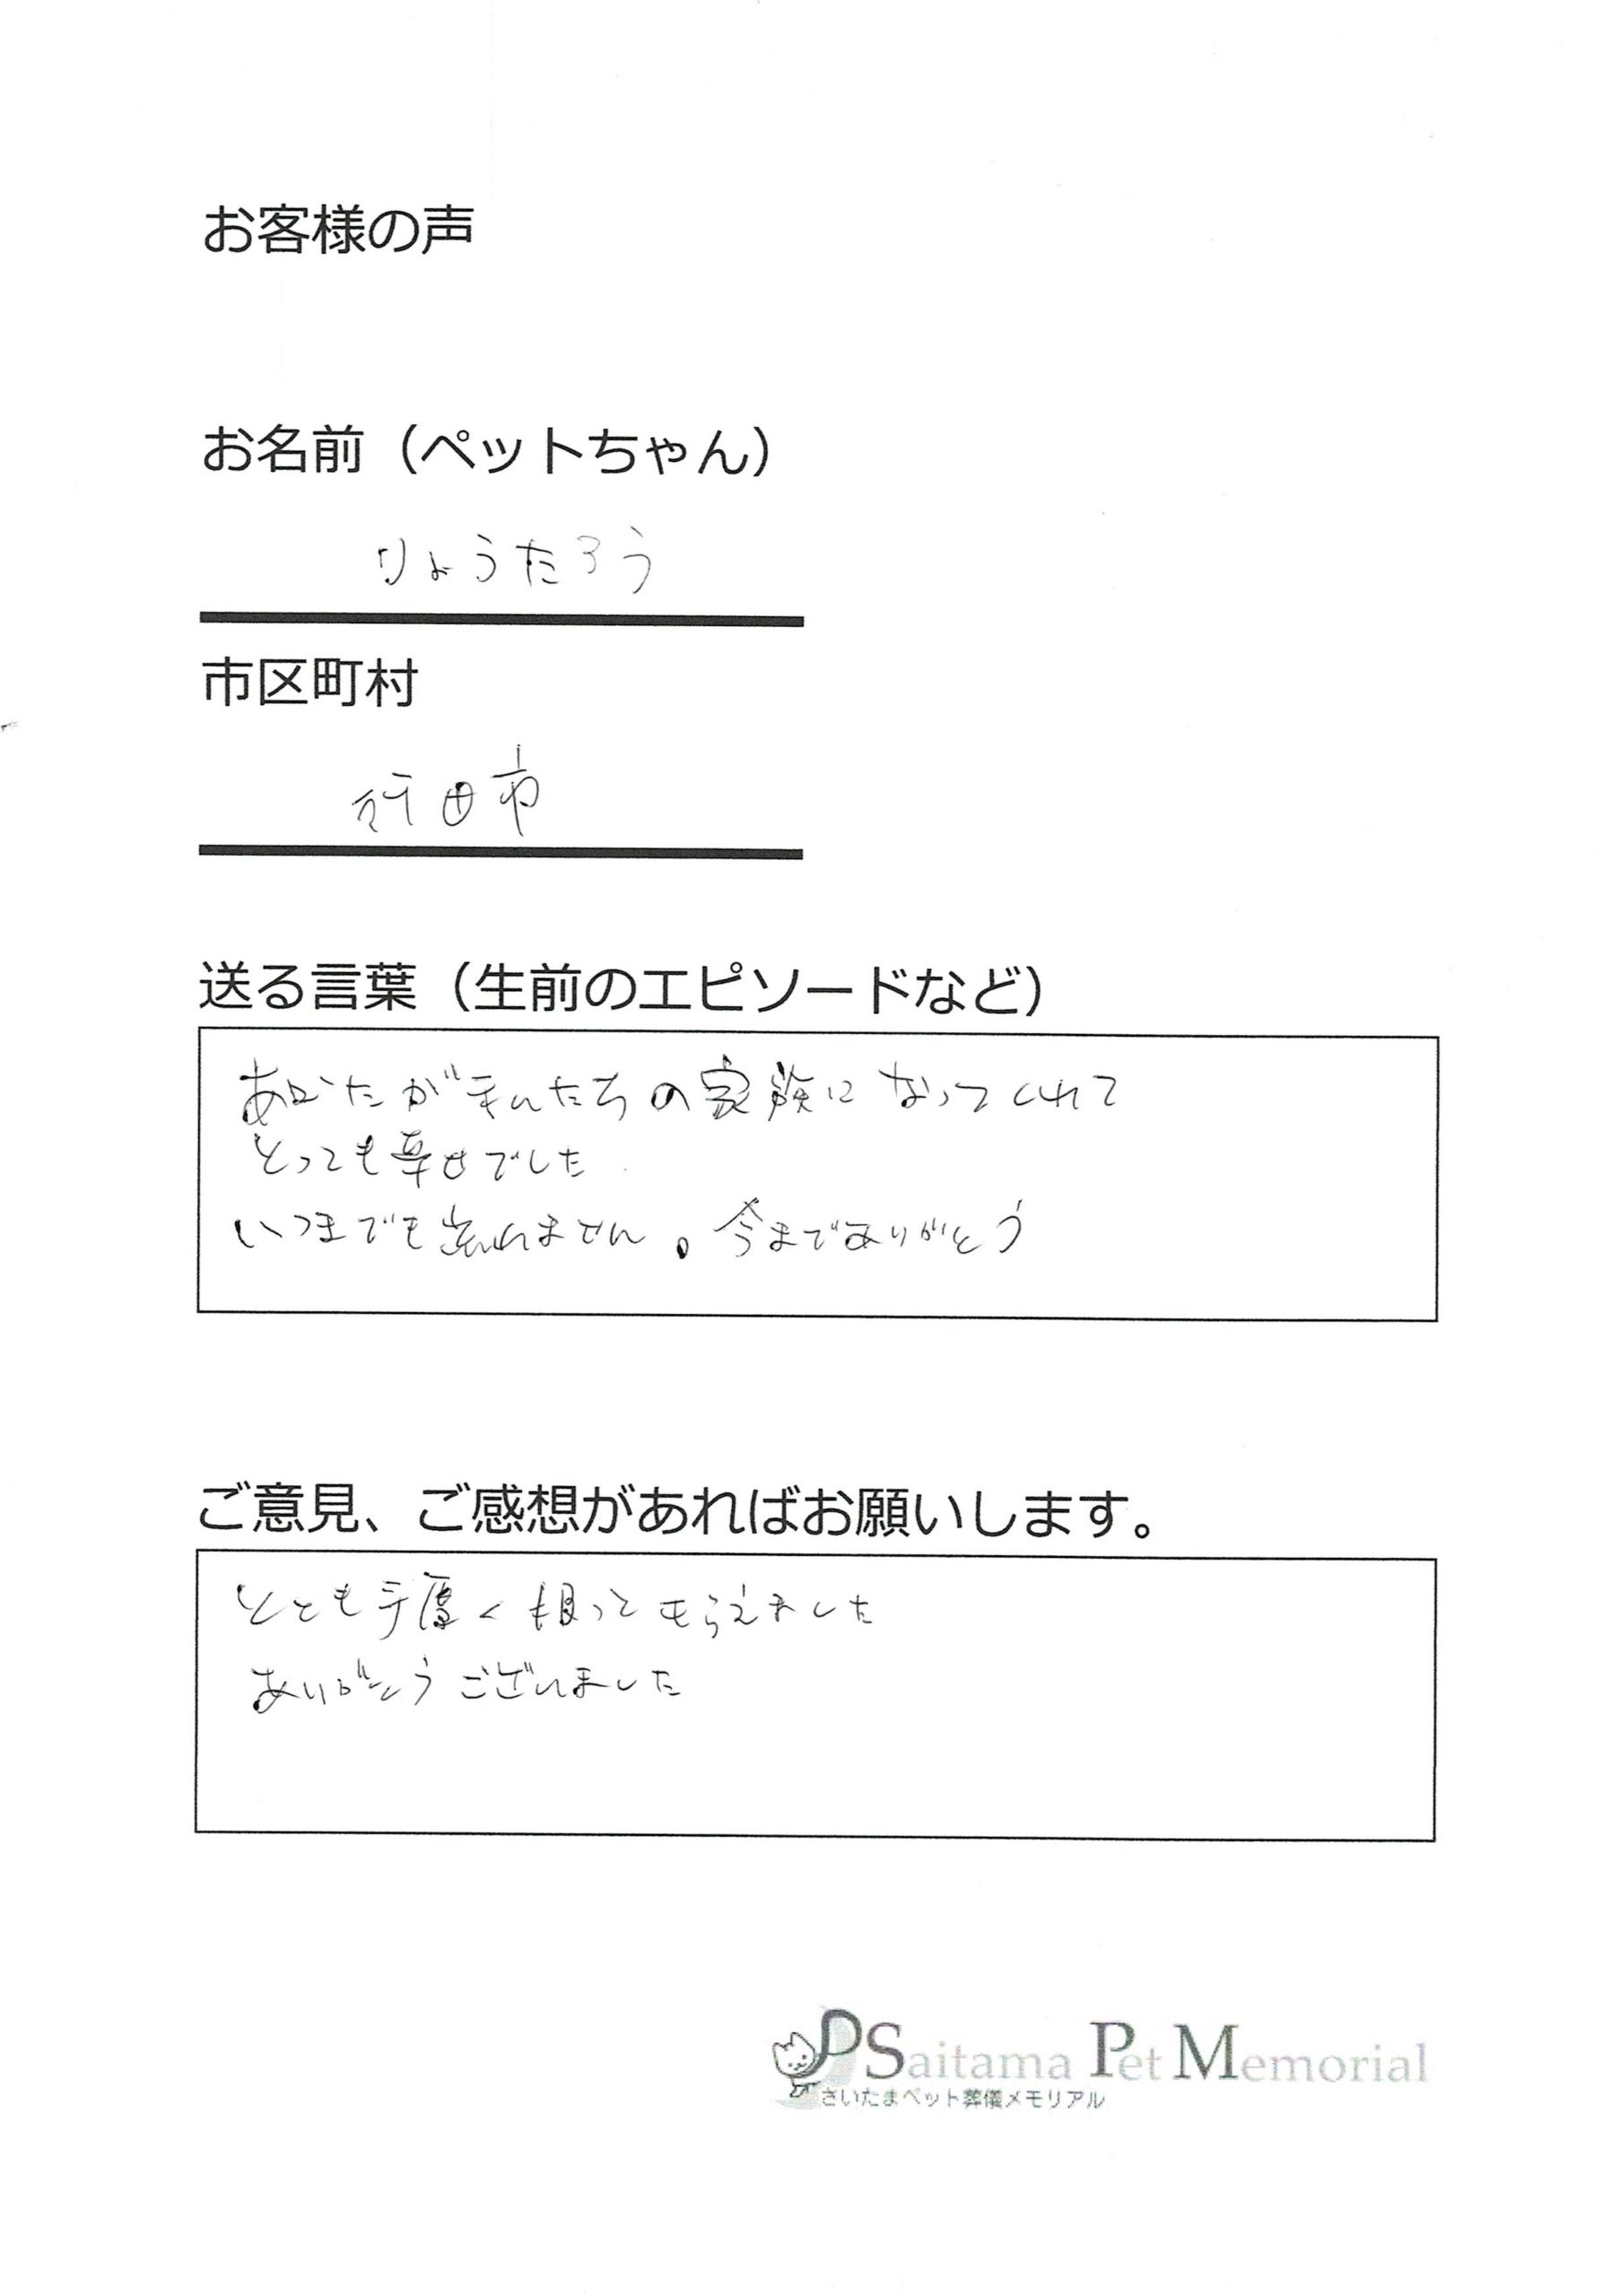 お客様の声
お名前（ペットちゃん）
りょうたろう
市区町村
行田市
送る言葉（生前のエピソードなど）
あなたが私たちの家族になってくれて
とっても幸せでした
いつまでも忘れません。今までありがとう
ご意見、ご感想があればお願いします。
とても手厚く扱ってもらえました
ありがとうございました
Saitama Pet Memorial
さいたまペット葬儀メモリアル